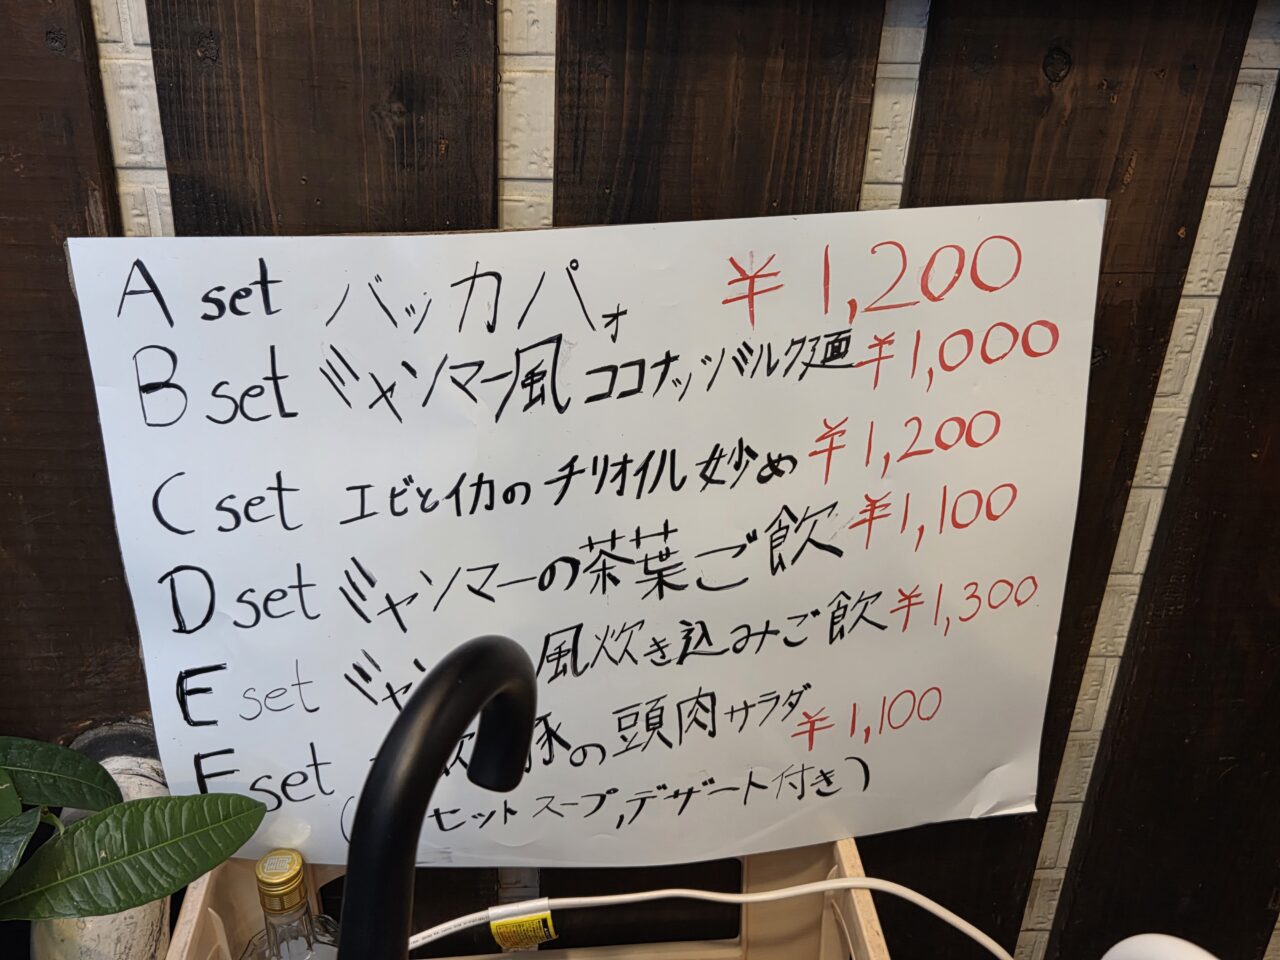 A set バッカパォ ¥1,200
B set ミャンマー風ココナッツバルク麺 ¥1,000
C set エビとイカのチリオイル炒め ¥1,200
D set ミャンマーの茶葉ご飯 ¥1,100
E set ミャン 風炊き込みご飯 ¥1,300
F set 豚の頭肉サラダ ¥1,100
セット スープ,デザート付き)